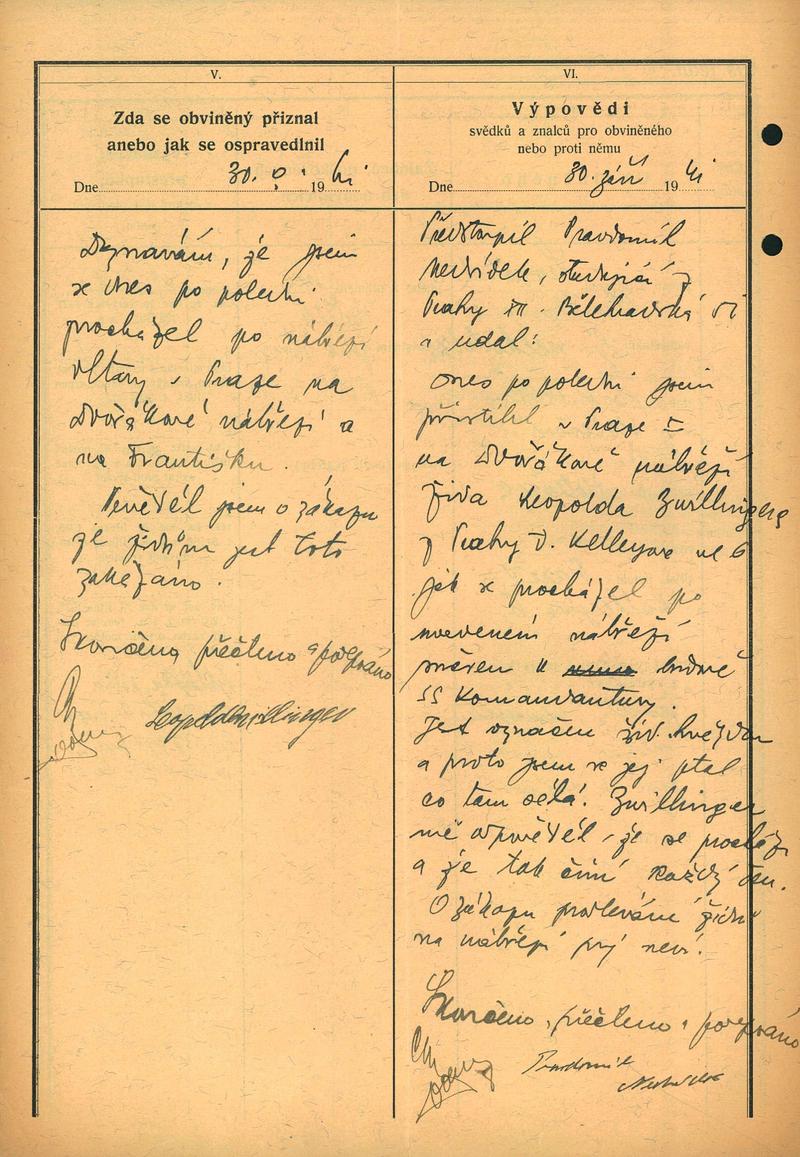 V.
Zda se obviněný přiznal
anebo jak se ospravedlnil
Dne 30. 9. 1941
Doznávám, že jsem
se dnes po poledni
procházel po nábřeží
Vltavy v Praze na
Dvořákově nábřeží a
na Františku.
Nevěděl jsem o zákazu
že židům jest toto
zakázáno.
Skončeno, přečteno a podepsáno
Leopold Zwillinger
VI.
Výpovědi
svědků a znalců pro obviněného
nebo proti němu
Dne 30. září 1941
Předstoupil Pravdomil
studující z
Prahy XII. Bělehradská
a udal:
Dnes po poledni jsem
přistihl v Praze I
na Dvořákově nábřeží
žida Leopolda Zwillingera
z Prahy V.
jak se procházel po
uvedeném nábřeží
směrem k budově
SS Komandantury.
Jest označen žid. hvězdou
a proto jsem se jej ptal
co tam dělá. Zwillinger
mě odpověděl, že se prochází
a že tak činí každý den.
O zákazu prodlévání židů
na nábřeží prý neví.
Skončeno, přečteno a podepsáno
Pravdomil